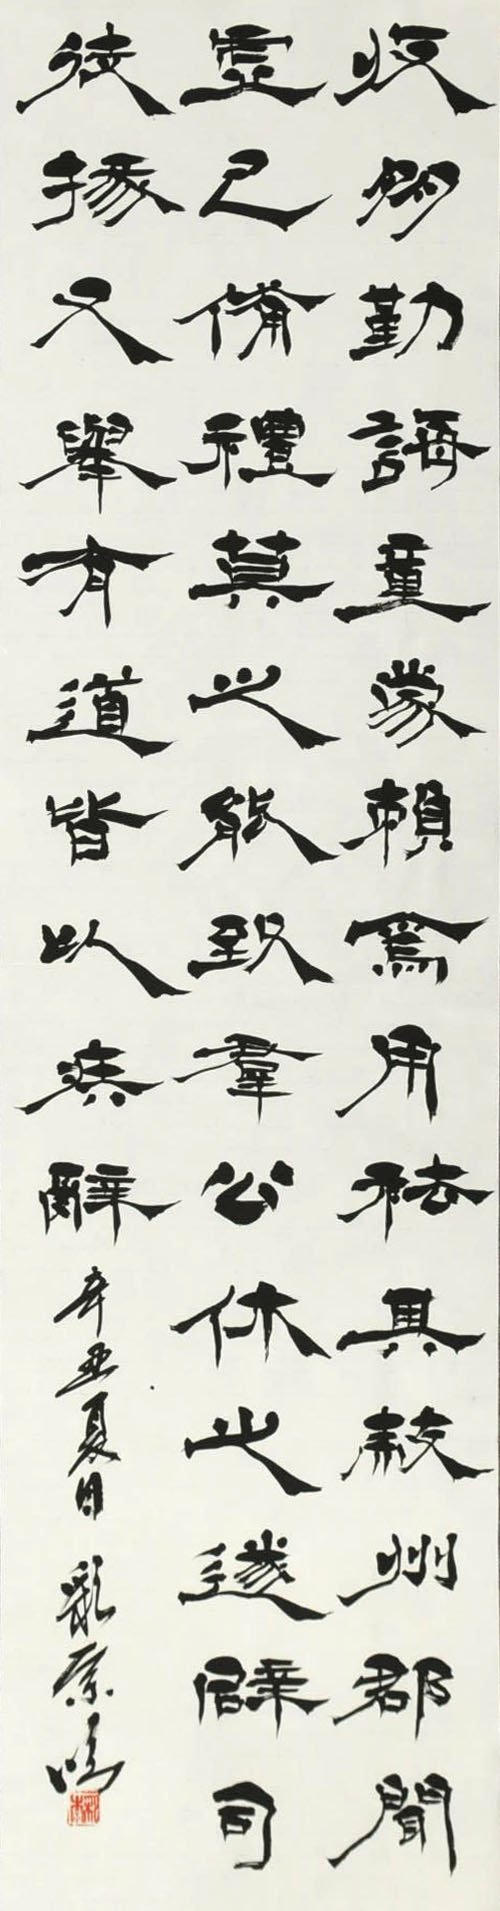 收朋勤誨童蒙賴焉用祛其敝州郡聞
虛己備禮莫之能致羣公休之遂辟司
徒掾又舉有道皆以疾辭
辛丑夏日